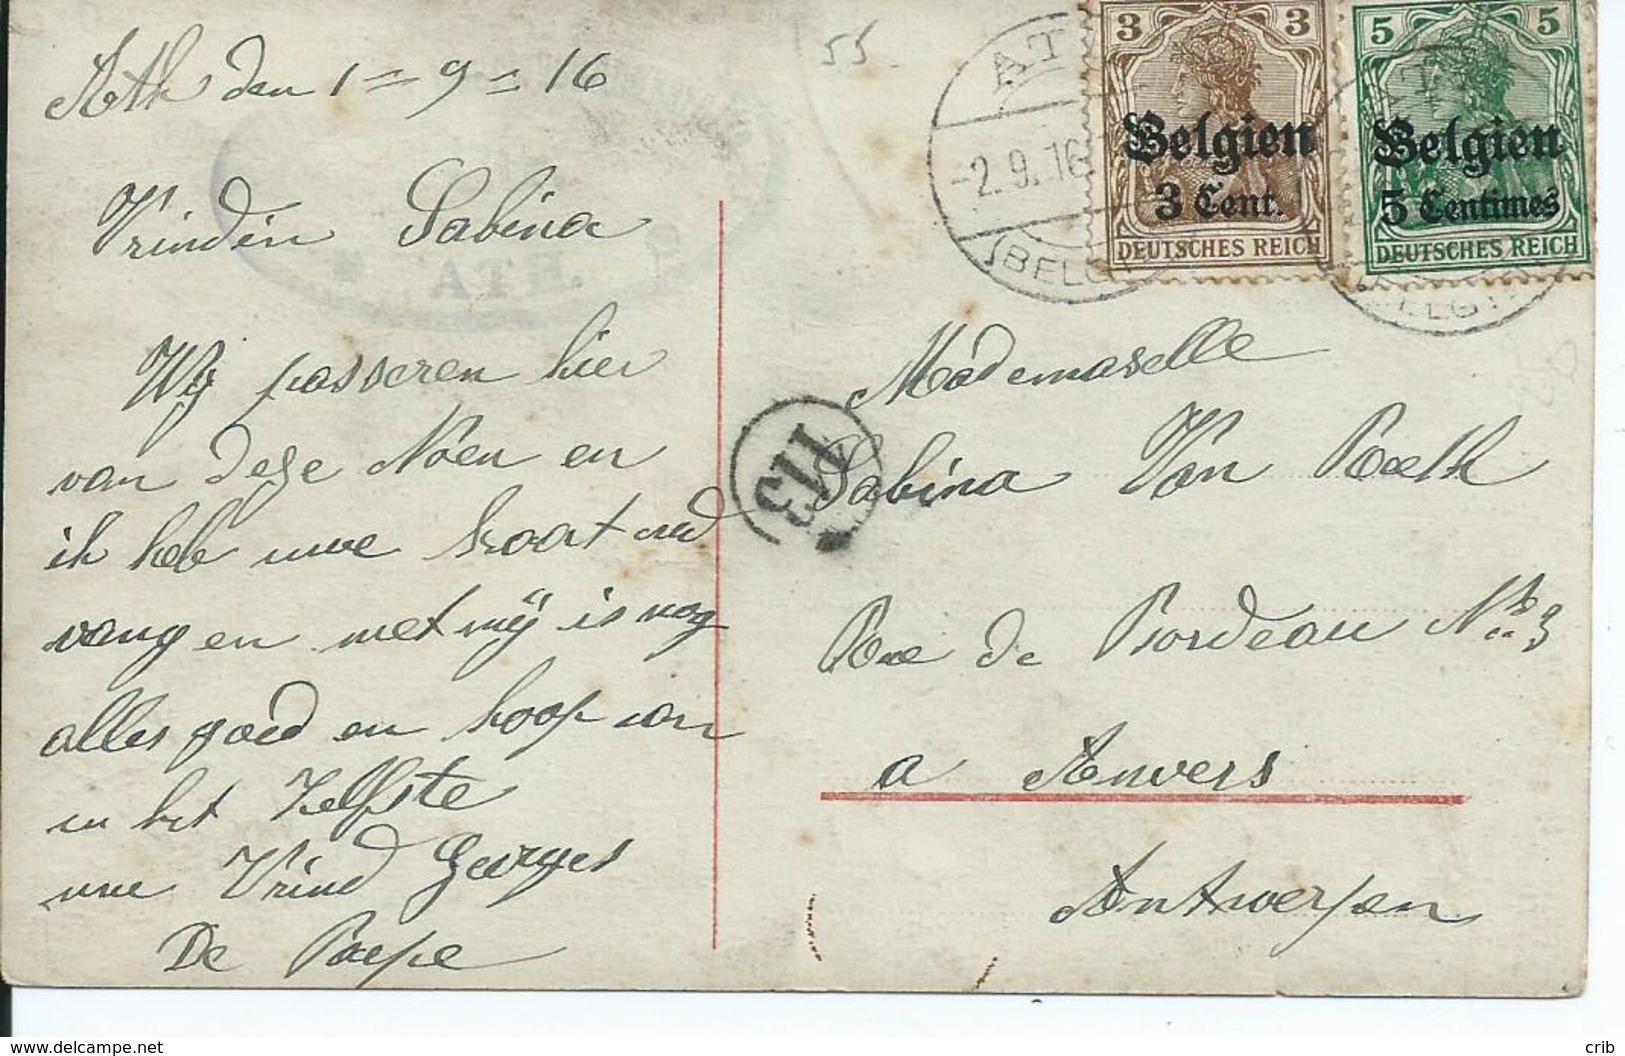 Ath den 1=9=16
Vrindin Sabina
Wij passeren hier
van deze Noen en
ik heb uwe kaart ond
vangen met mij is nog
alles goed en hoop van
u het Zelfste
uwe Vrind Georges
De Paepe
55
3 3
Belgien
3 Cent.
DEUTSCHES REICH
5 5
Belgien
5 Centimes
DEUTSCHES REICH
AT
-2.9.16
(BELGI
ATH.
Mademaselle
Sabina Van Raeth
Rue de Bordeau No 3
a Anvers
Antwerpen
delcampe.net
crib